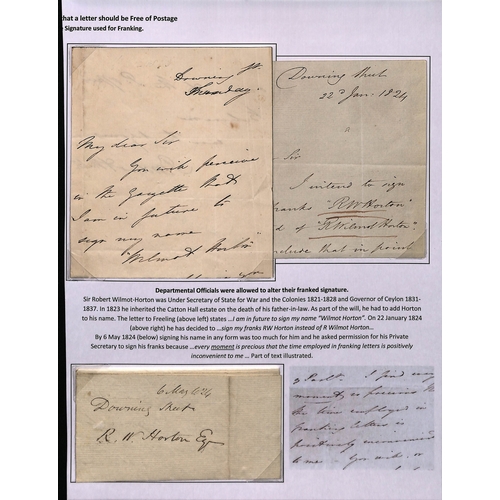 that a letter should be Free of Postage
Signature used for Franking.
Downing St
Thursday.
My dear Sir
You will perceive
in the Gazette that
I am in future to
sign my name
"Wilmot Horton"
Downing Street
22d Jan. 1824
Sir
I intend to sign
franks "RW Horton"
of "R Wilmot Horton"
that in point
Departmental Officials were allowed to alter their franked signature.
Sir Robert Wilmot-Horton was Under Secretary of State for War and the Colonies 1821-1828 and Governor of Ceylon 1831-
1837. In 1823 he inherited the Catton Hall estate on the death of his father-in-law. As part of the will, he had to add Horton
to his name. The letter to Freeling (above left) states ...I am in future to sign my name "Wilmot Horton". On 22 January 1824
(above right) he has decided to ...sign my franks RW Horton instead of R Wilmot Horton...
By 6 May 1824 (below) signing his name in any form was too much for him and he asked permission for his Private
Secretary to sign his franks because ...every moment is precious that the time employed in franking letters is positively
inconvenient to me ... Part of text illustrated.
6 May 1824
Downing Street
R. W Horton Esq
I find every
moment so precious that
the time employed in
franking letters is
positively inconvenient
to me. You will